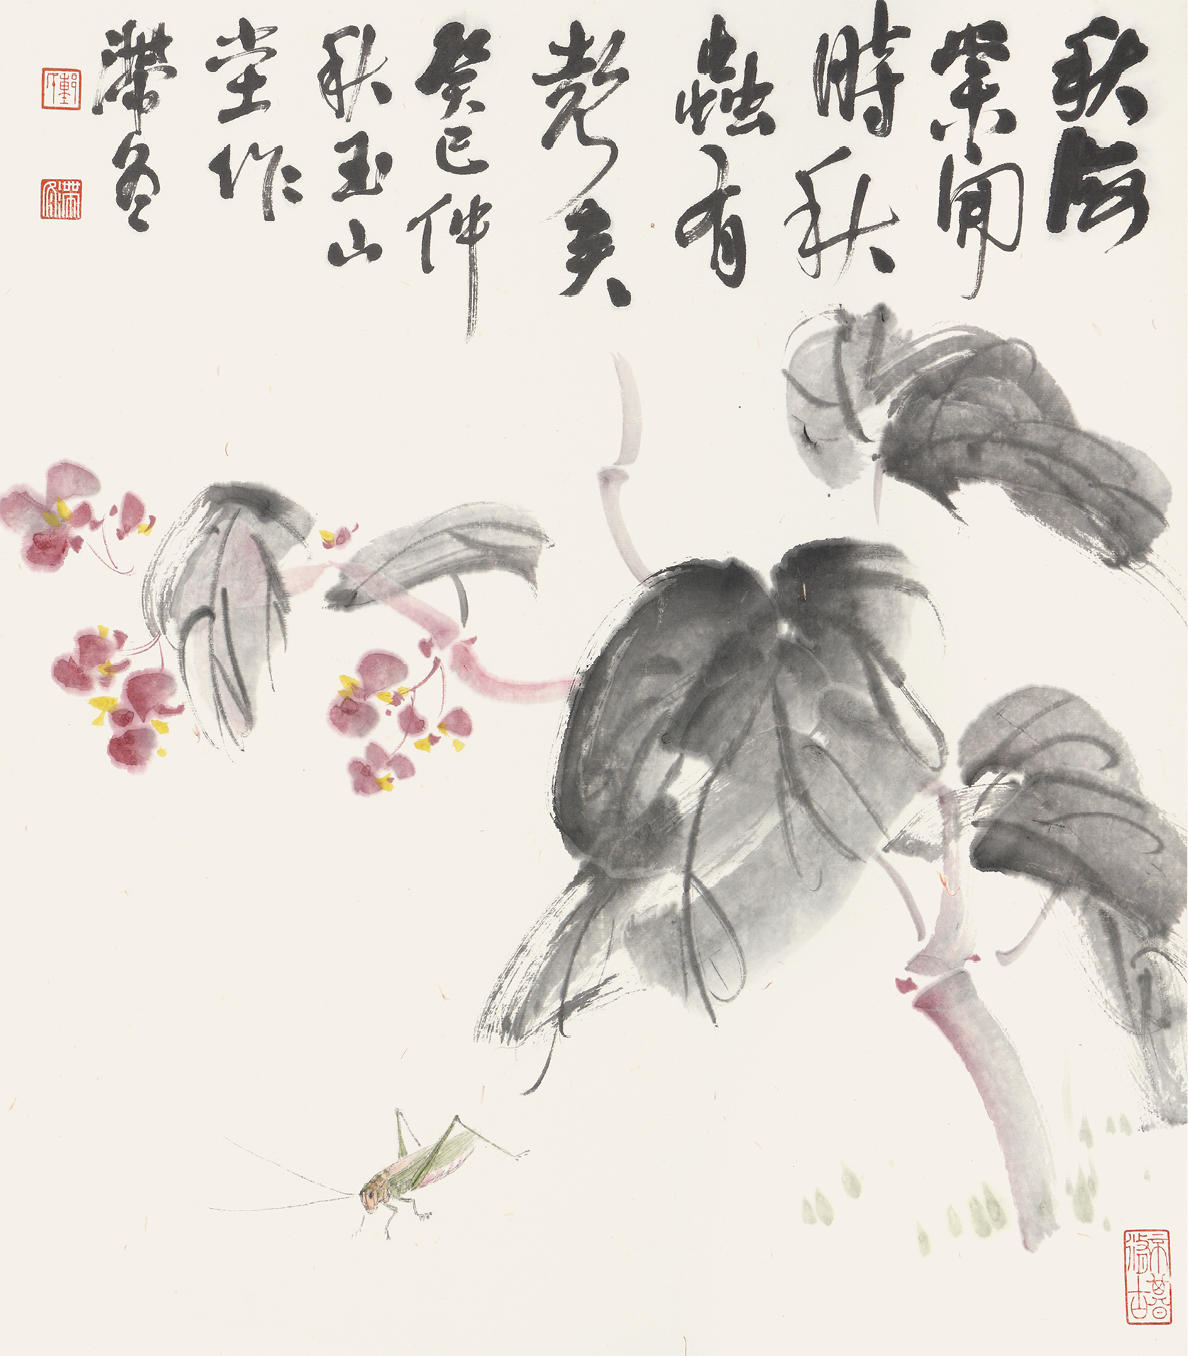 秋海
棠開
時秋
蟲有
聲矣
癸巳仲
秋玉山
堂作
滯冬